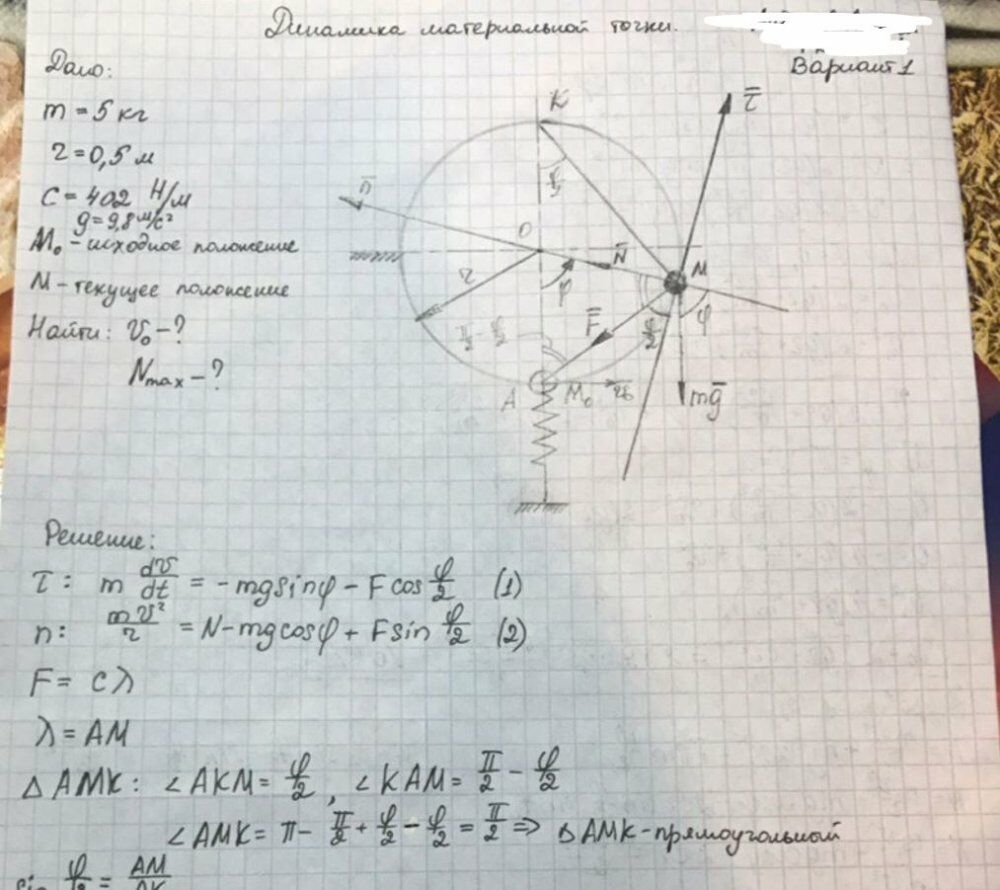 Динамика материальной точки.
Вариант 1
Дано:
m = 5 кг
r = 0,5 м
C = 402 Н/м
g = 9,8 м/с²
M₀ - исходное положение
M - текущее положение
Найти: v₀ - ?
Nmax - ?
K
τ̅
φ/2
n̅
O
N̅
M
r
φ
F̅
φ
π/2 - φ/2
φ/2
A
M₀
v̅₀
mg̅
Решение:
τ: m dv/dt = -mg sinφ - F cos φ/2 (1)
n: mv²/r = N - mg cosφ + F sin φ/2 (2)
F = cλ
λ = AM
△ AMK: ∠AKM = φ/2, ∠KAM = π/2 - φ/2
∠AMK = π - π/2 + φ/2 - φ/2 = π/2 => △AMK - прямоугольный
sin φ/2 = AM/AK